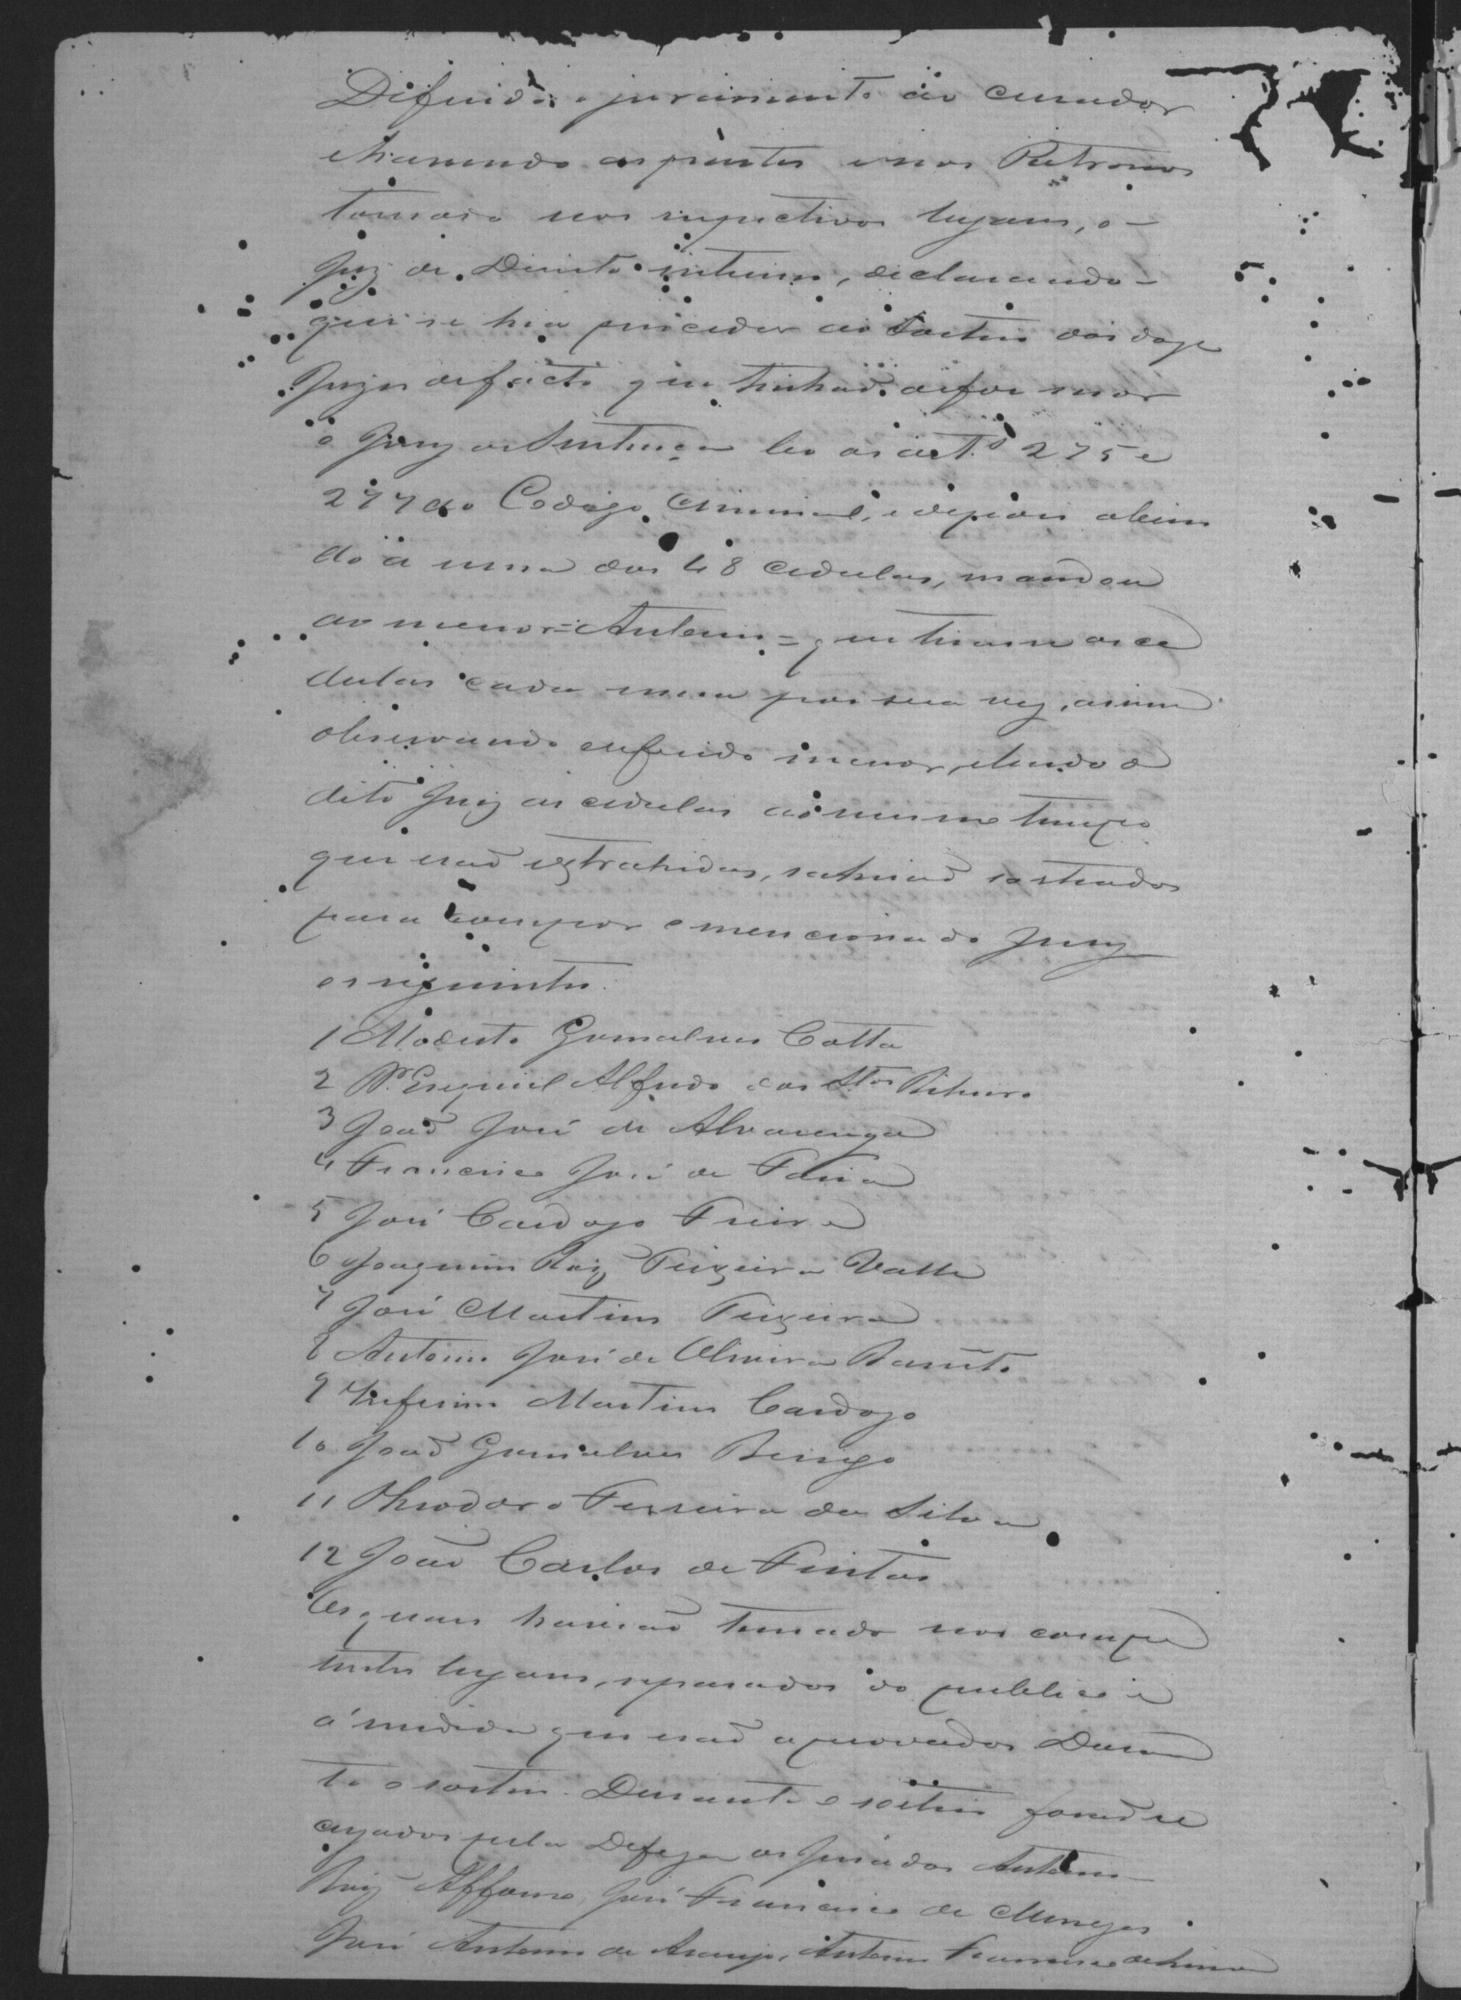 Diferido o juramento ao curador
e havendo as partes e nos Patronos
tomado nos respectivos lugares, o
Juiz de Direito interino, declarando
que se hia proceder ao sorteio dos doze
Juizes de facto que tinhaõ de formar
o Jury de Sentença leo os art.s 275 e
277 do Codigo Criminal, e depois abrin
do a urna das 48 cedulas, mandou
ao menor = Antonio = que tirasse as ce
dulas cada uma por sua vez, assim
observando o referido menor, e lendo o
dito Juiz as cedulas ao mesmo tempo
que eraõ extrahidas, sahiraõ sorteados
para compor o mencionado Jury
os seguintes:
1 Modesto Gonsalves Cotta
2 Pe. Ezequiel Alfredo dos Stos Ribeiro
3 Joaõ José de Alvarenga
4 Francisco José de Faria
5 José Cardozo Freire
6 Joaquim Roiz Teixeira Valle
7 José Martins Teixeira
8 Antonio José de Oliveira Barreto
9 Zeferino Martins Cardozo
10 Joaõ Gonsalves
11 Theodoro Ferreira da Silva
12 Joaõ Carlos de Freitas
Os quaes haviaõ tomado nos compe
tentes lugares, separados do publico e
á medida que eraõ aprovados Duran
te o sorteio. Durante o sorteio foraõ re
cuzados pela Defeza os Jurados Antonio
Roiz Affonso, José Francisco de Menezes
José Antonio de Araujo, Antonio Francisco de Lima